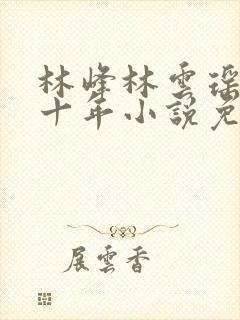 林峰林雲瑶
十年小說免
展雲香